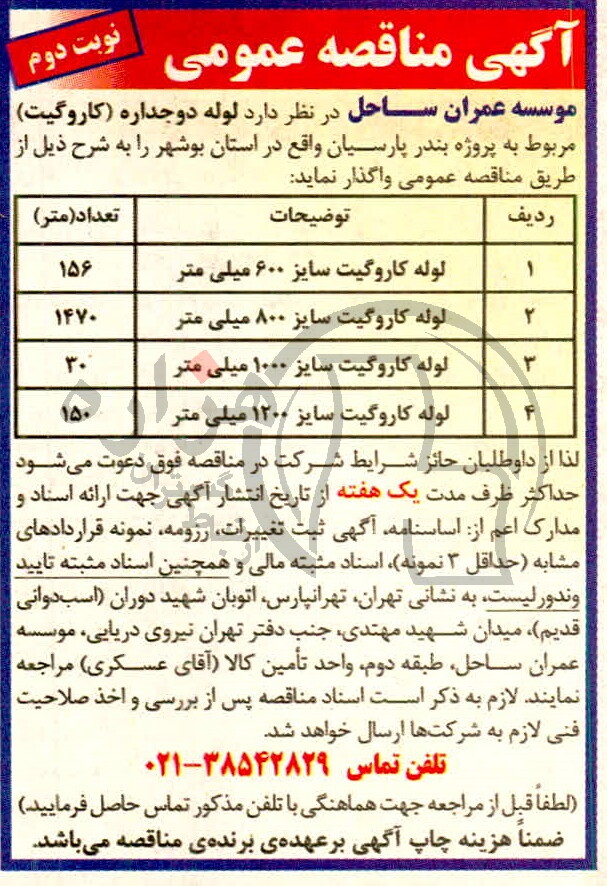 آگهی مناقصه عمومی
نوبت دوم
موسسه عمران ساحل در نظر دارد لوله دوجداره (کاروگیت)
مربوط به پروژه بندر پارسیان واقع در استان بوشهر را به شرح ذیل از
طریق مناقصه عمومی واگذار نماید:
ردیف توضیحات تعداد(متر)
۱ لوله کاروگیت سایز ۶۰۰ میلی متر ۱۵۶
۲ لوله کاروگیت سایز ۸۰۰ میلی متر ۱۴۷۰
۳ لوله کاروگیت سایز ۱۰۰۰ میلی متر ۳۰
۴ لوله کاروگیت سایز ۱۲۰۰ میلی متر ۱۵۰
لذا از داوطلبان حائز شرایط شرکت در مناقصه فوق دعوت می‌شود
حداکثر ظرف مدت یک هفته از تاریخ انتشار آگهی جهت ارائه اسناد و
مدارک اعم از: اساسنامه، آگهی ثبت تغییرات، رزومه، نمونه قراردادهای
مشابه (حداقل ۳ نمونه)، اسناد مثبته مالی و همچنین اسناد مثبته تایید
وندورلیست، به نشانی تهران، تهرانپارس، اتوبان شهید دوران (اسب‌دوانی
قدیم)، میدان شهید مهتدی، جنب دفتر تهران نیروی دریایی، موسسه
عمران ساحل، طبقه دوم، واحد تأمین کالا (آقای عسکری) مراجعه
نمایند. لازم به ذکر است اسناد مناقصه پس از بررسی و اخذ صلاحیت
فنی لازم به شرکت‌ها ارسال خواهد شد.
تلفن تماس ۳۸۵۴۲۸۲۹-۰۲۱
(لطفاً قبل از مراجعه جهت هماهنگی با تلفن مذکور تماس حاصل فرمایید.)
ضمناً هزینه چاپ آگهی برعهده‌ی برنده‌ی مناقصه می‌باشد.
هزاره